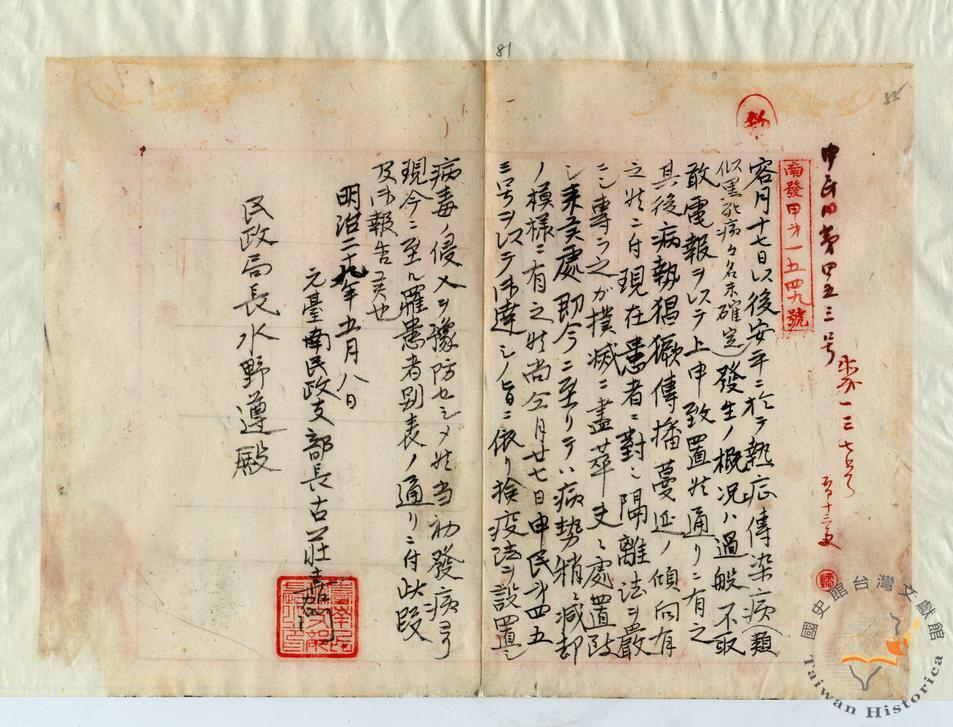 81
85
申民内第四五三号
南發甲第一五四九號
客月十七日以後安平ニ於テ熱症傳染病(類
似黒死病々名未確定)發生ノ概况ハ過般不取
敢電報ヲ以テ上申致置候通リニ有之
其後病勢猖獗傳播蔓延ノ傾向有
之候ニ付現在患者ニ對シ隔離法ヲ嚴
ニシ専ラ之カ撲滅ニ盡萃
シ来候處即今ニ至リテハ病勢稍々減却
ノ模様ニ有之候尚仝月廿七日申民第四五
三号ヲ以テ御達シノ旨ニ依リ檢疫法ヲ設置シ
病毒ノ侵入ヲ豫防セシメ候當初發病ヨリ
現今ニ至ル罹患者別表ノ通リニ付此段
及御報告候也
明治二十九年五月八日
元臺南民政支部長古莊嘉門
民政局長水野遵殿
國史館台灣文獻館
Taiwan Historica